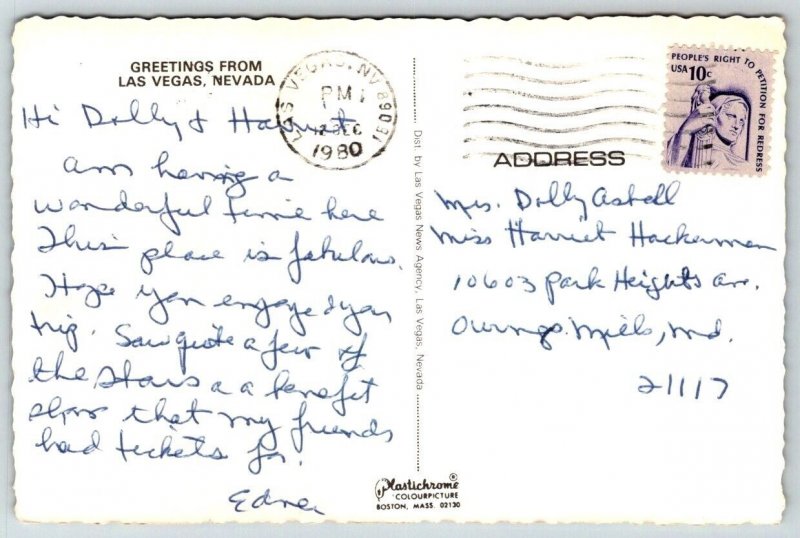 GREETINGS FROM
LAS VEGAS, NEVADA
LAS VEGAS, NV 89031
PM
12 DEC
1980
PEOPLE'S RIGHT TO PETITION FOR REDRESS
USA 10c
Hi Dolly & Harriet
Am having a
wonderful time here
This place is fabulous.
Hope you enjoyed your
trip. Saw quite a few of
the stars a a benefit
show that my friends
had tickets for.
Edna
Dist. by Las Vegas News Agency, Las Vegas, Nevada
ADDRESS
Mrs. Dolly Astell
Miss Harriet Hackerman
10603 Park Heights Ave.
Owings Mills, Md.
21117
Plastichrome®
COLOURPICTURE
BOSTON, MASS. 02130